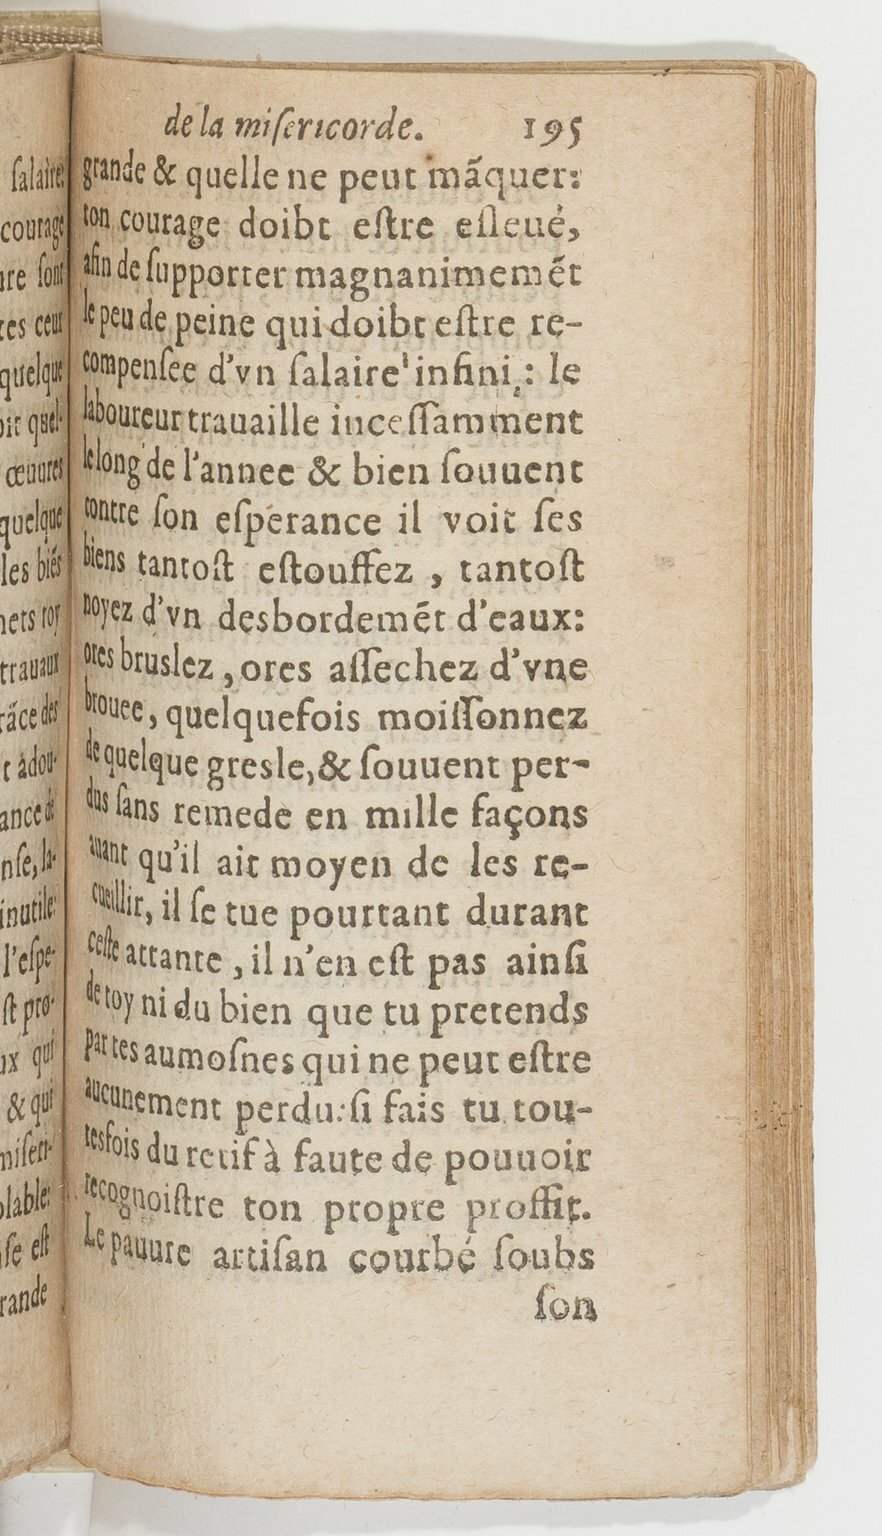 de la miſericorde. 195
grande & quelle ne peut mãquer:
ton courage doibt eſtre eſleué,
afin de ſupporter magnanimemẽt
le peu de peine qui doibt eſtre re-
compenſee d'vn ſalaire infini : le
laboureur trauaille inceſſamment
le long de l'annee & bien ſouuent
contre ſon eſperance il voit ſes
biens tantoſt eſtouffez , tantoſt
noyez d'vn desbordemẽt d'eaux:
ores bruslez , ores aſſechez d'vne
brouee, quelquefois moiſſonnez
de quelque gresle, & ſouuent per-
dus ſans remede en mille façons
auant qu'il ait moyen de les re-
cueillir, il ſe tue pourtant durant
ceſte attante , il n'en eſt pas ainſi
de toy ni du bien que tu pretends
par tes aumoſnes qui ne peut eſtre
aucunement perdu: ſi fais tu tou-
tesfois du retif à faute de pouuoir
recognoiſtre ton propre proffit.
Le pauure artiſan courbé ſoubs
ſon
ſalaire:
courage
ſont
ceux
quelque
quel-
œuures
quelque
les biẽs
toy
trauaux
des
adou-
de
inutile:
l'eſpe-
pro-
qui
& qui
eſt